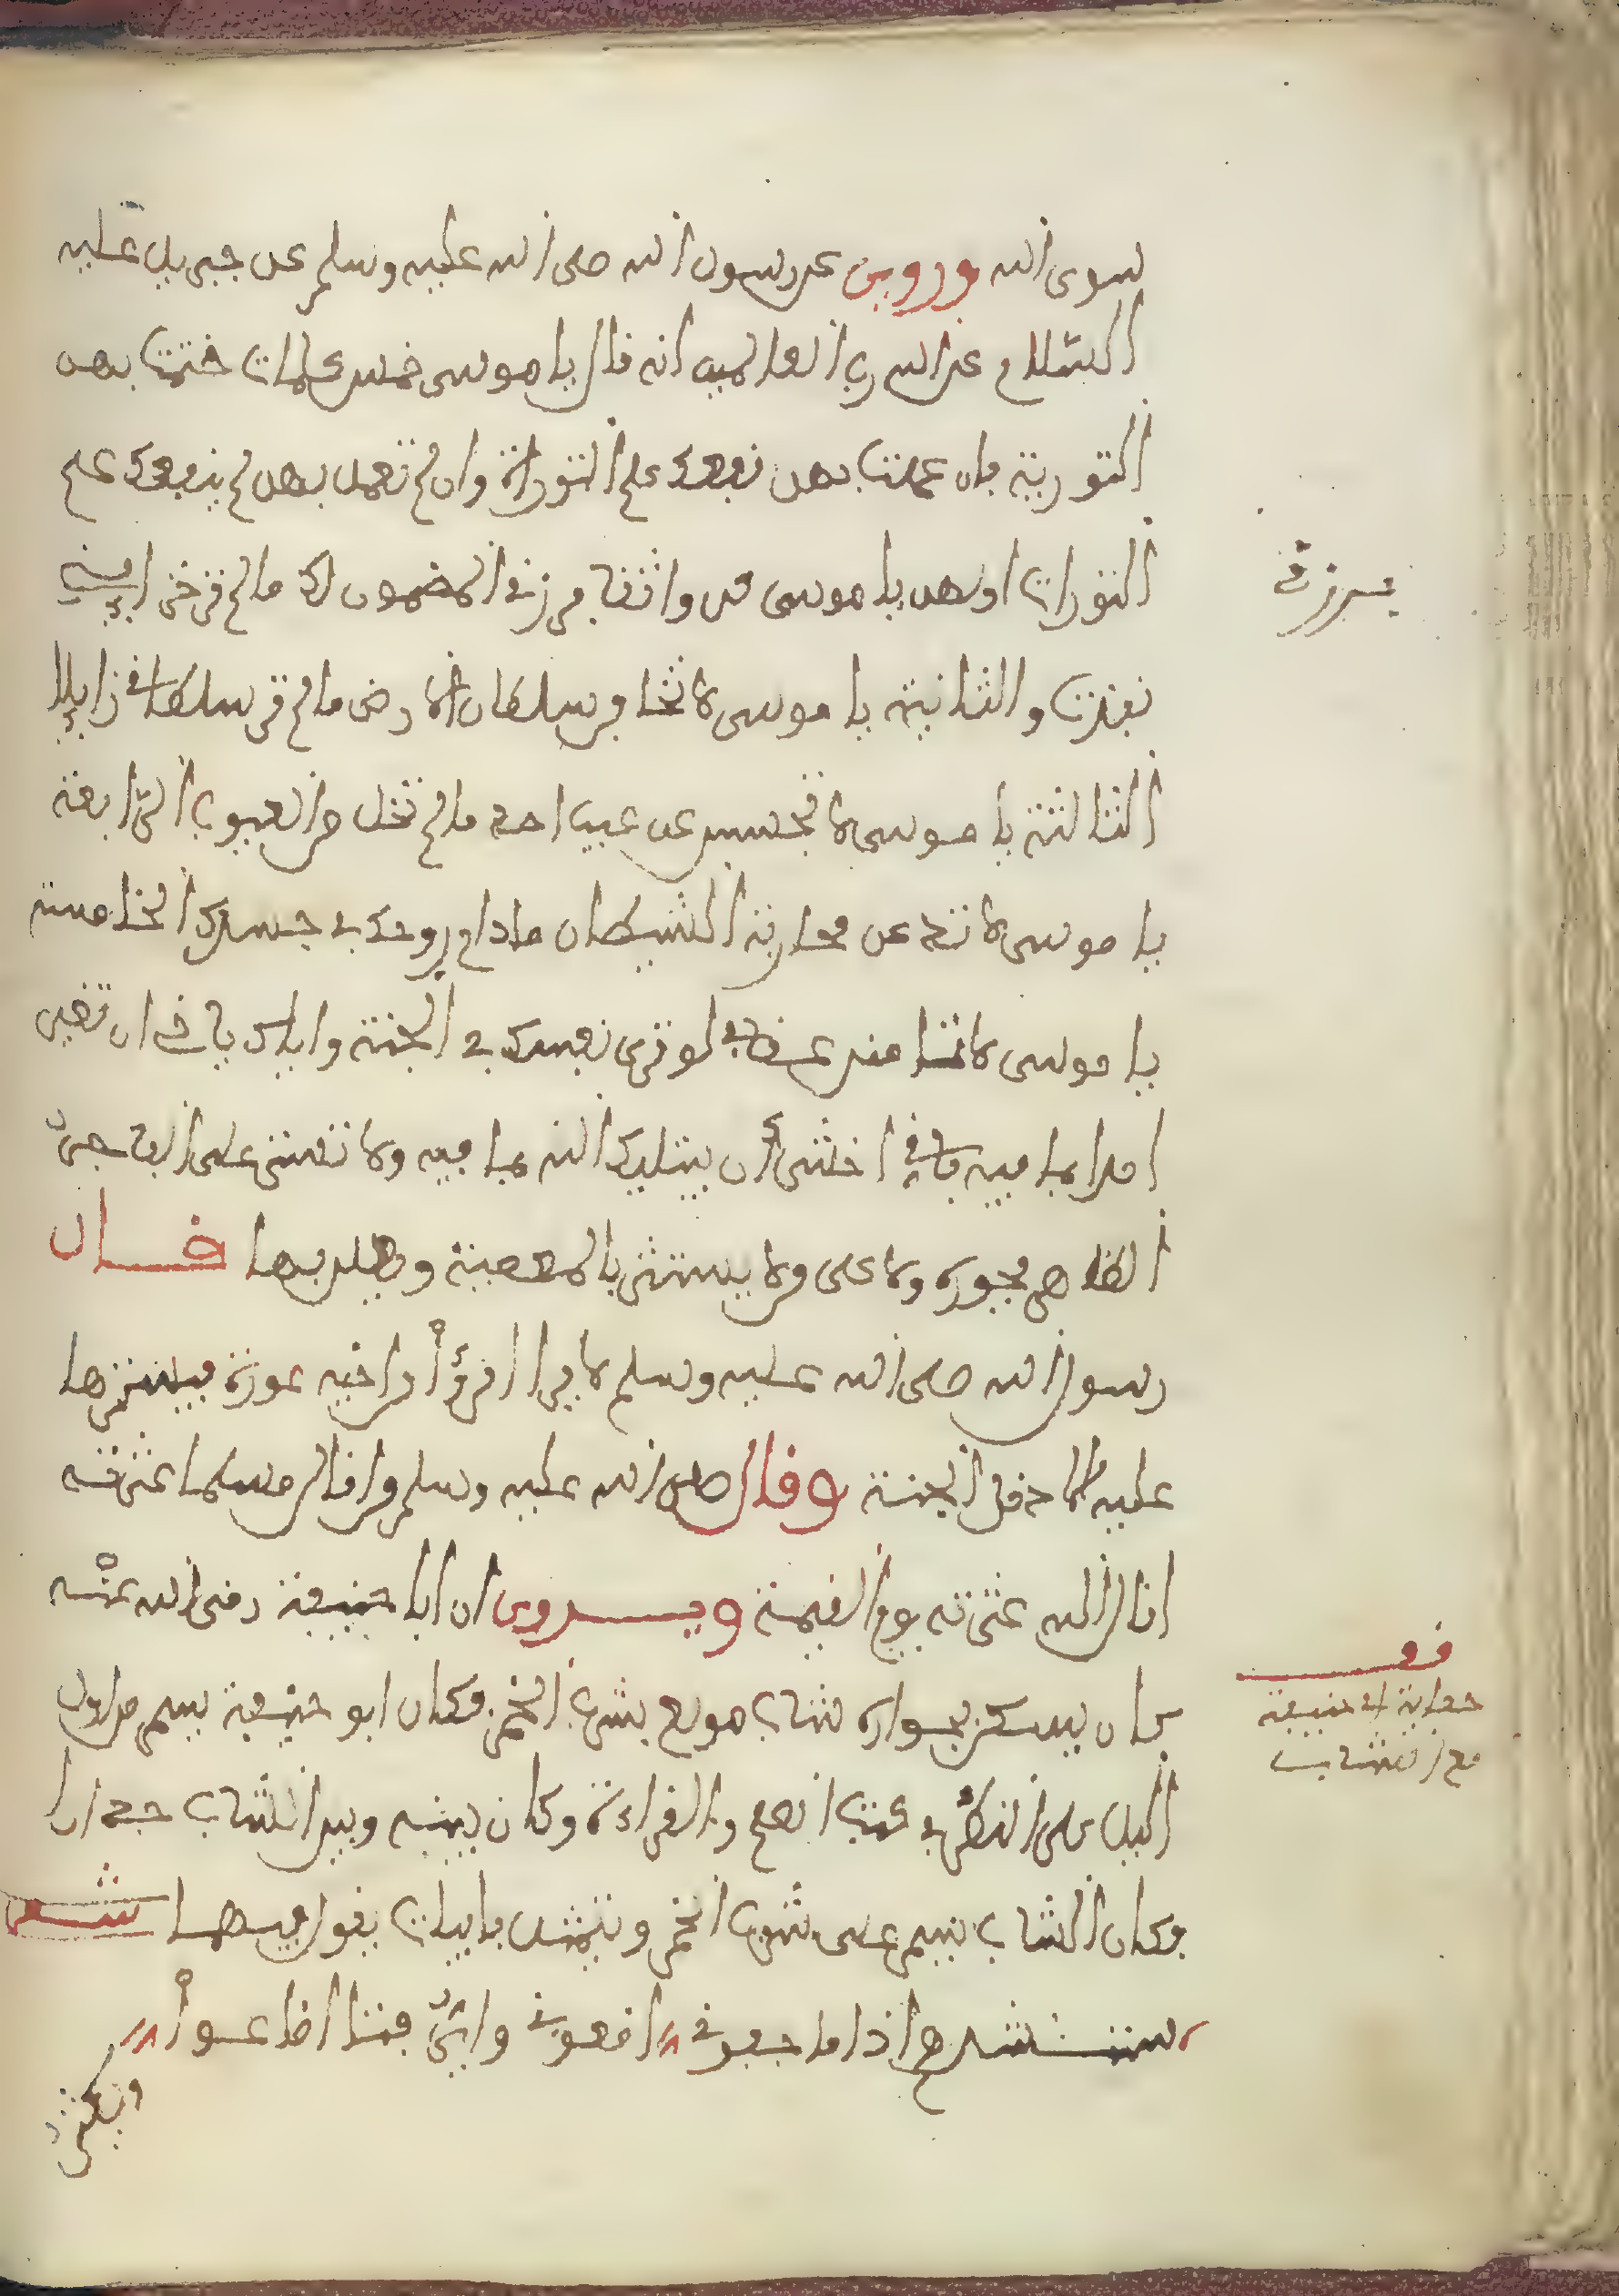 سوى الله وروي عن رسول الله صلى الله عليه وسلم عن جبريل عليه
السّلام عن الله رب العالمين انه قال يا موسى خمس كلمات ختمت بهن
التورية فان عملت بهن نفعك علم التوراة وان لم تعمل بهن لم ينفعك علم
التورات اولهن يا موسى كن واثقا برزقي المضمون لك ما لم تر خزايني
نفذت والثانية يا موسى لا تخاف سلطان الارض ما لم تر سلطاني زايلا
الثالثة يا موسى لا تجسس عن عيب احد ما لم تخل من العيوب الرّابعة
يا موسى لا تدع عن محاربة الشيطان ما دام روحك في جسدك الخامسة
يا موسى لا تامن عقابي لو ترى نفسك في الجنة واياك يا اخي ان تعير
احدا بما فيه فاني اخشى أن يبتليك الله بما فيه ولا تفتش على الفاجر
الظاهر فجوره ولا على ولا يستتر بالمعصية وطلبها قال
رسول الله صلى الله عليه وسلم لا يرا امرؤ من اخيه عورة فيسترها
عليه الا دخل الجنة وقال صلى الله عليه وسلم من اقال مسلما عثرته
اقال الله عثرته يوم القيمة ويروى ان ابا حنيفة رضي الله عنه
كان يسكن بجواره شاب مولع بشرب الخمر فكان ابو حنيفة يسهر من اول
اليل على النظر في كتب العلم والقراءة وكان بينه وبين الشاب جدارا
فكان الشاب يسهر على شرب الخمر وينشد بابيات يقول فيها شعر
سنشرح اذا ما جفوني اضعوني وايّ فتا اضاعوا
ويكثر
برزقي
قف
حكاية ابي حنيفة
مع الشاب